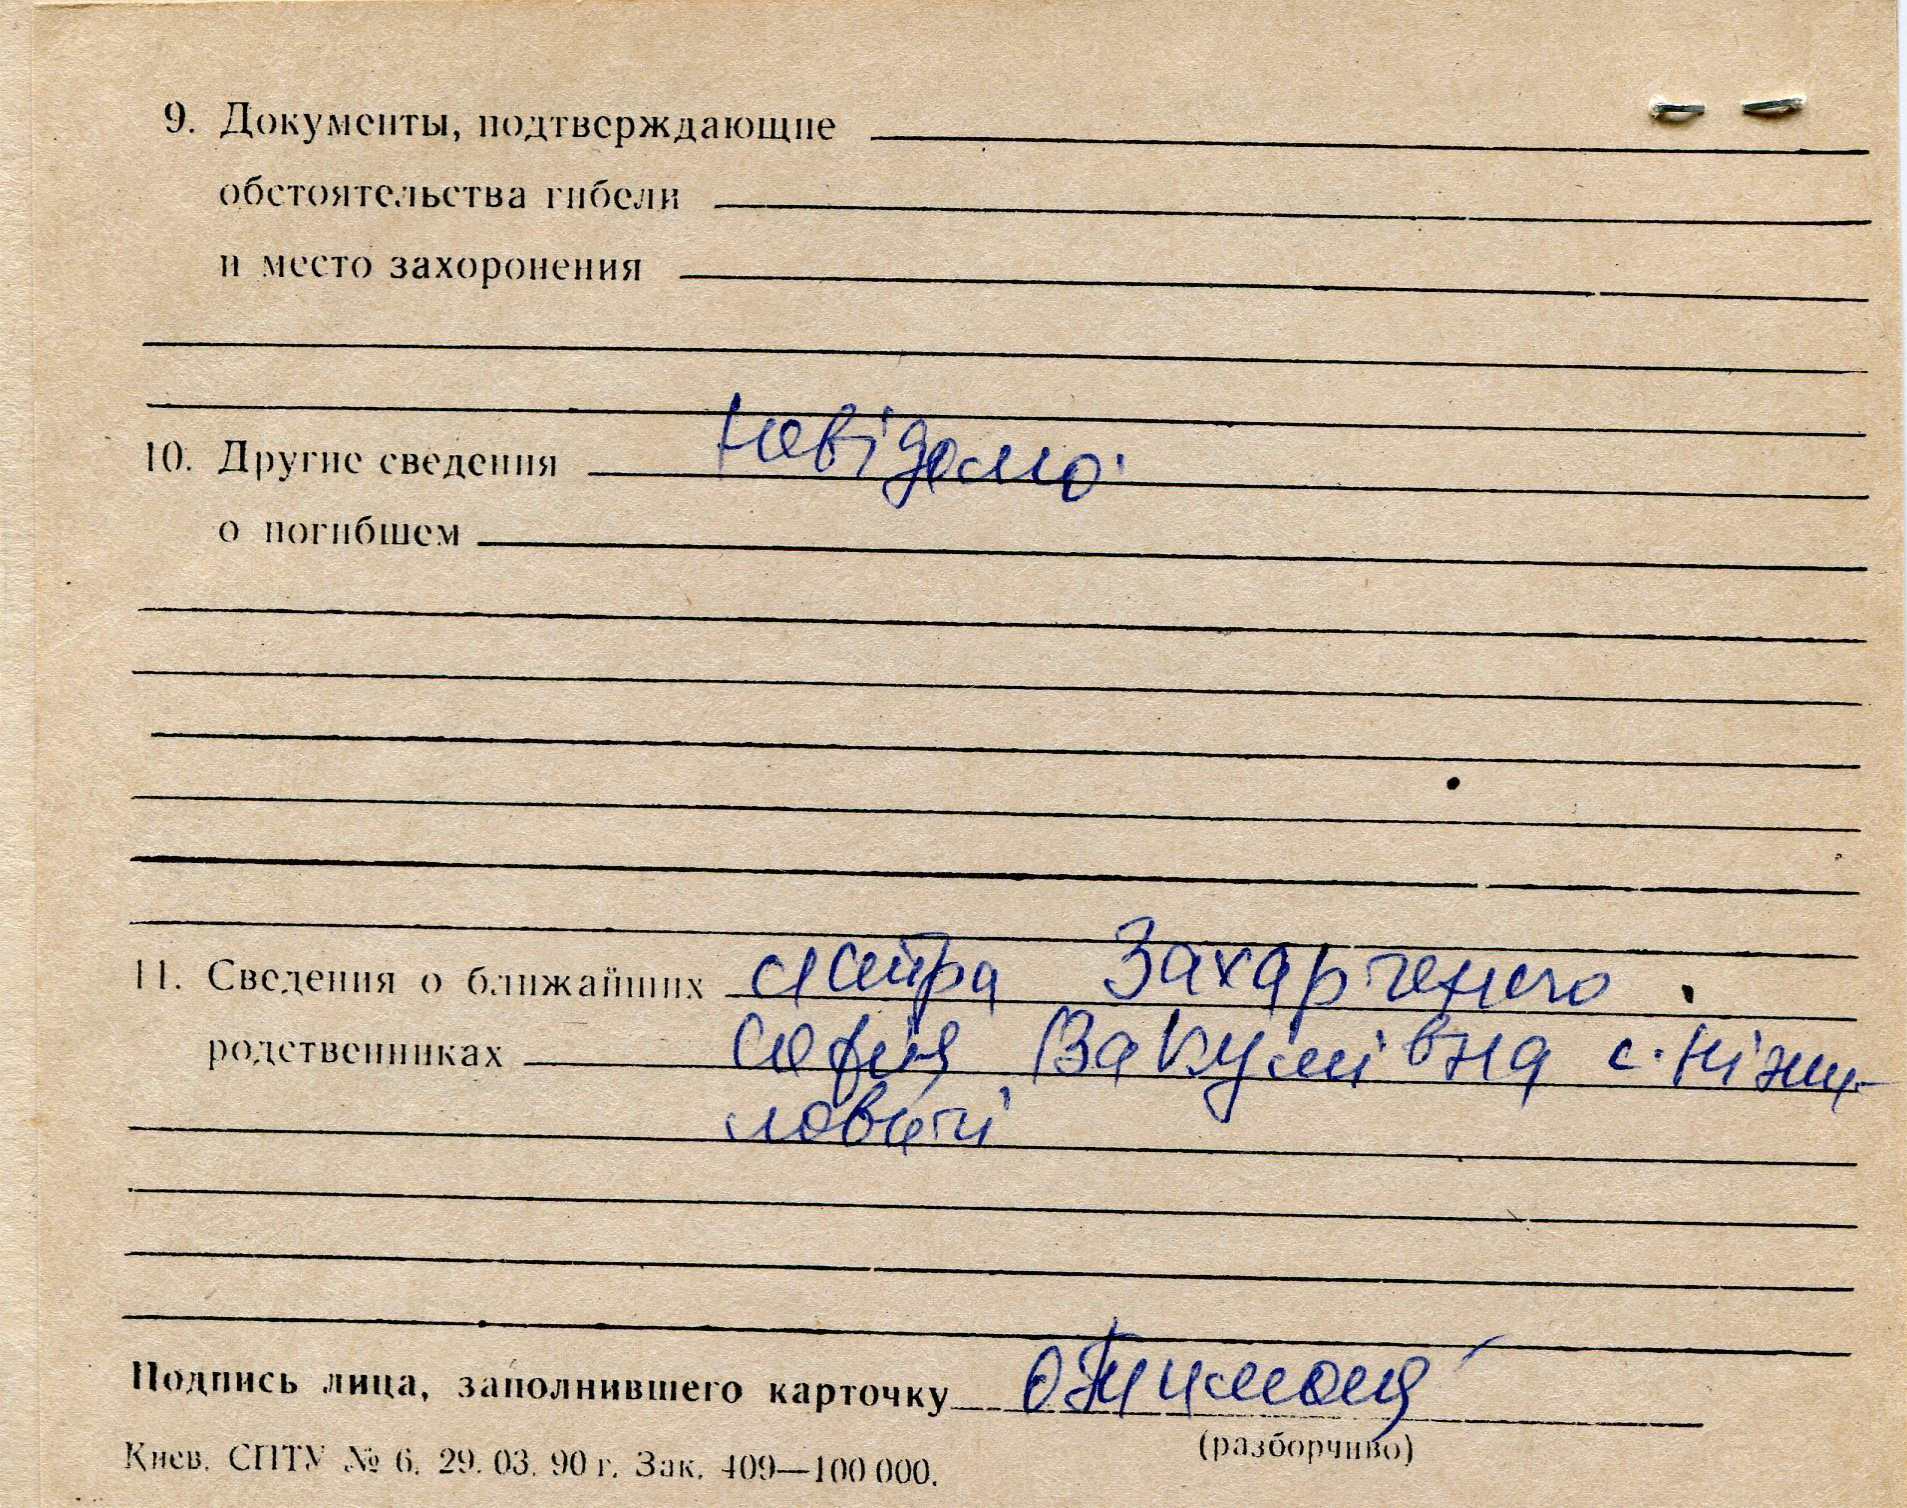 9. Документы, подтверждающие
обстоятельства гибели
и место захоронения
10. Другие сведения невідомо
о погибшем
11. Сведения о ближайших сестра Захарченко
родственниках Софія Вакумівна с. Ніжи-
ловичі
Подпись лица, заполнившего карточку
(разборчиво)
Киев. СПТУ № 6. 29. 03. 90 г. Зак. 409—100 000.